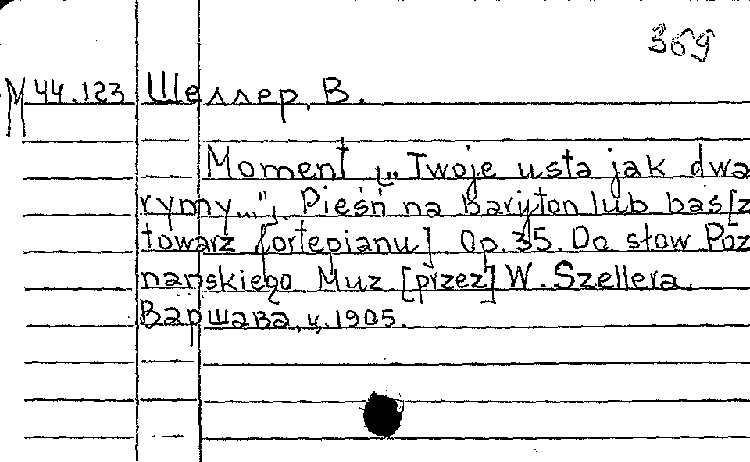 369
М 44.123 Шеллер, В.
Moment („Twoje usta jak dwa
rymy..."). Pieśń na Baryton lub bas [z
towarz fortepianu]. Op. 35. Do słow Poz
nańskiego Muz [przez] W. Szellera.
Варшава, ц. 1905.